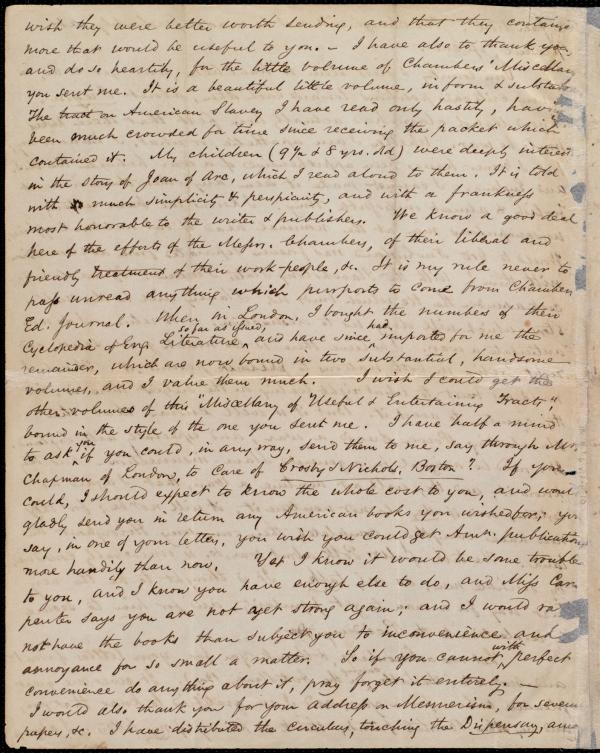 wish they were better worth sending, and that they contained
more that would be useful to you. — I have also to thank you
and do so heartily, for the little volume of Chambers' Miscellany
you sent me. It is a beautiful little volume, in form & substance
The tract on American Slavery I have read only hastily, having
been much crowded for time since receiving the packet which
contained it. My children (9½ & 8 yrs. old) were deeply interested
in the story of Joan of Arc, which I read aloud to them. It is told
with much simplicity & perspicuity, and with a frankness
most honorable to the writer & publishers. We know a good deal
here of the efforts of the Messrs. Chambers, of their liberal and
friendly treatment of their work-people, &c. It is my rule never to
pass unread anything which purports to come from Chambers
Ed. Journal. When in London, I bought the numbers of their
Cyclopedia of Eng. Literature, so far as issued, and have since had imported for me the
remainder, which are now bound in two substantial, handsome
volumes, and I value them much. I wish I could get the
other volumes of this "Miscellany of Useful & Entertaining Tracts",
bound in the style of the one you sent me. I have half a mind
to ask you if you could, in any way, send them to me, say through Mr.
Chapman of London, to care of Crosby & Nichols, Boston? If you
could, I should expect to know the whole cost to you, and would
gladly send you in return any American books you wished for; you
say, in one of your letters, you wish you could get Amn. publications
more handily than now. Yet I know it would be some trouble
to you, and I know you have enough else to do, and Miss Car-
penter says you are not yet strong again; and I would ra
not have the books than subject you to inconvenience and
annoyance for so small a matter. So if you cannot with perfect
convenience do anything about it, pray forget it entirely. —
I would also thank you for your Address on Mesmerism, for several
papers, &c. I have distributed the circulars touching the Dispensary, and